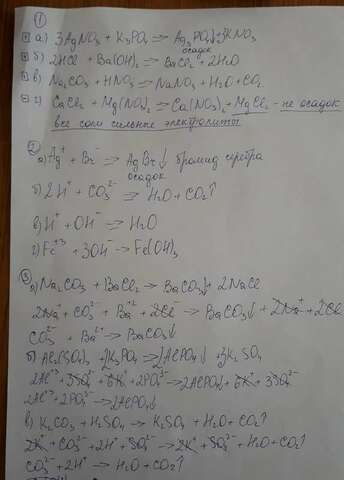 ①
а) 3AgNO₃ + K₃PO₄ ⇒ Ag₃PO₄↓+3KNO₃
осадок
б) 2HCl + Ba(OH)₂ ⇒ BaCl₂ + 2H₂O
в) Na₂CO₃ + HNO₃ ⇒ NaNO₃ + H₂O + CO₂
г) CaCl₂ + Mg(NO₃)₂ ⇒ Ca(NO₃)₂ + MgCl₂ - не осадок
все соли сильные электролиты
②
а) Ag⁺ + Br⁻ ⇒ AgBr↓ бромид серебра
осадок
б) 2H⁺ + CO₃²⁻ ⇒ H₂O + CO₂↑
в) H⁺ + OH⁻ ⇒ H₂O
г) Fe⁺³ + 3OH⁻ → Fe(OH)₃
③
а) Na₂CO₃ + BaCl₂ → BaCO₃↓ + 2NaCl
2Na⁺ + CO₃²⁻ + Ba⁺² + 2Cl⁻ → BaCO₃↓ + 2Na⁺ + 2Cl
CO₃²⁻ + Ba⁺² → BaCO₃↓
б) Al₂(SO₄)₃ + 2K₃PO₄ → 2AlPO₄↓ + 3K₂SO₄
2Al⁺³ + 3SO₄²⁻ + 6K⁺ + 2PO₄³⁻ → 2AlPO₄↓ + 6K⁺ + 3SO₄²⁻
2Al⁺³ + 2PO₄³⁻ → 2AlPO₄↓
в) K₂CO₃ + H₂SO₄ → K₂SO₄ + H₂O + CO₂↑
2K⁺ + CO₃²⁻ + 2H⁺ + SO₄²⁻ → 2K⁺ + SO₄²⁻ + H₂O + CO₂↑
CO₃²⁻ + 2H⁺ → H₂O + CO₂↑